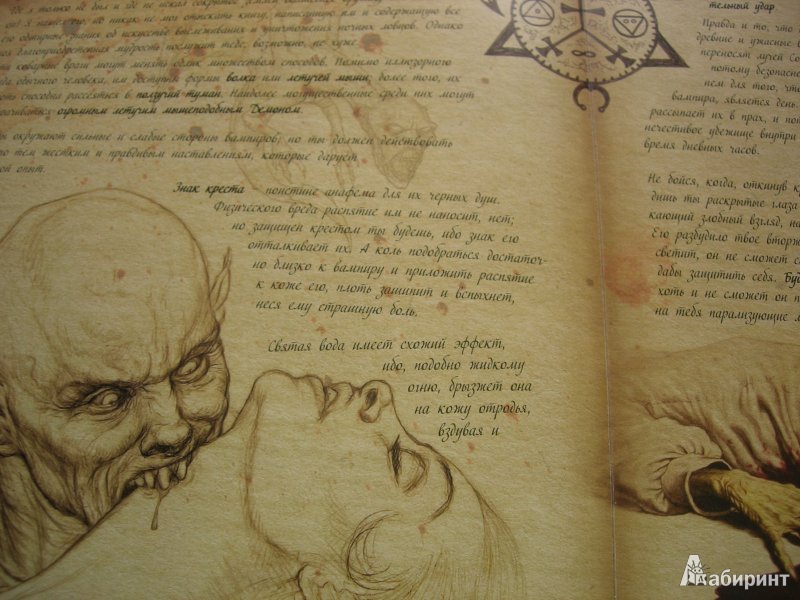 где я только не был и где не искал сокрытое
но никак не мог отыскать книгу, написанную им и содержащую все
его обширные знания об искусстве выслеживания и уничтожения ночных ловцов. Однако
благоприобретенная мудрость послужит тебе, возможно, не хуже.
коварные враги могут менять облик множеством способов. Помимо иллюзорного
обычного человека, им доступны формы волка или летучей мыши; более того, их
способна рассеяться в ползучий туман. Наиболее могущественные среди них могут
огромным летучим мышеподобным Демоном.
окружают сильные и слабые стороны вампиров; но ты должен действовать
тем жестким и правдивым наставлениям, которые дарует
ой опыт.
Знак креста поистине анафема для их черных душ.
Физического вреда распятие им не наносит, нет;
но защищен крестом ты будешь, ибо знак его
отталкивает их. А коль подобраться достаточ-
но близко к вампиру и приложить распятие
к коже его, плоть зашипит и вспыхнет,
неся ему страшную боль.
Святая вода имеет схожий эффект,
ибо, подобно жидкому
огню, брызжет она
на кожу отродья,
вздувая и
тельный удар
Правда и то, что
древние и ужасные
переносят лучей Со
потому безопаснее
нем для того, что
вампира, является день.
рассыпает их в прах, и пот
нечестивое убежище внутри
время дневных часов.
Не бойся, когда, откинув к
дишь ты раскрытые глаза
кающий злобный взгляд, на
Его разбудило твое вторж
светит, он не сможет с
дабы защитить себя. Буд
хоть и не сможет он п
на тебя парализующие
Лабиринт